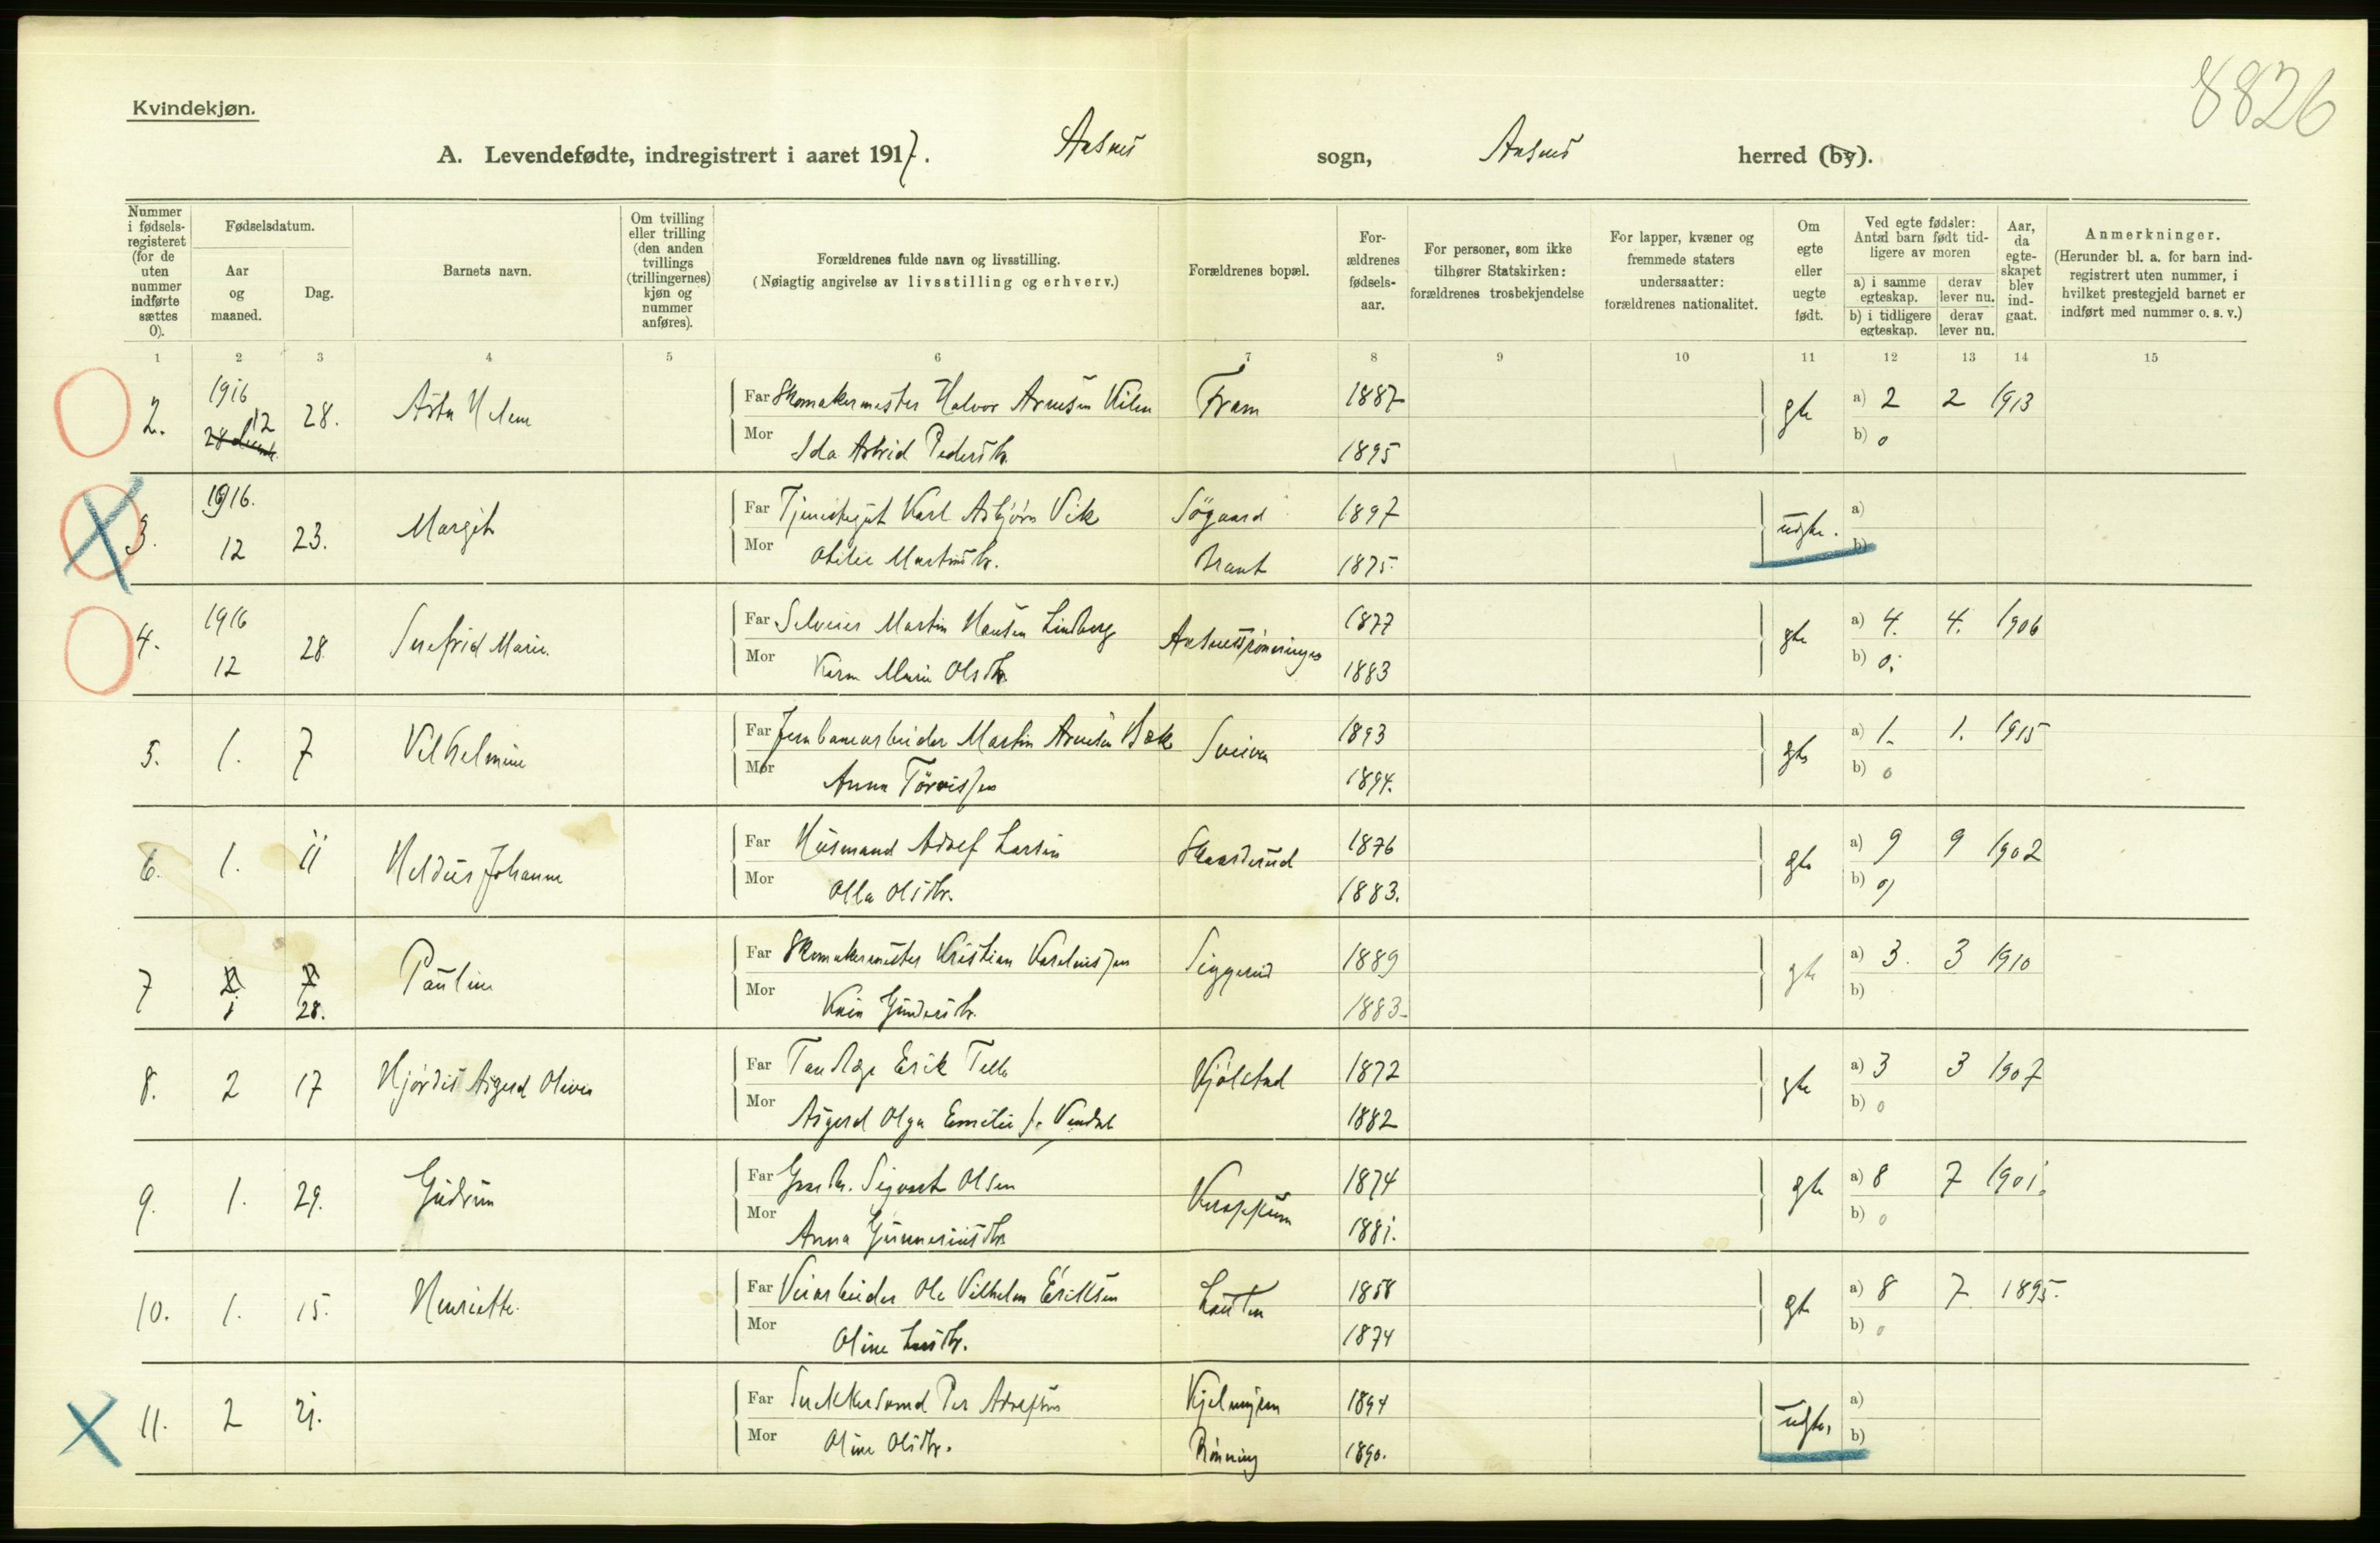 8826
Kvindekjøn.
A. Levendefødte, indregistrert i aaret 1917. Aasnes sogn, Aasnes herred (by).
Nummer i fødselsregisteret (for de uten nummer indførte sættes 0).
Fødselsdatum.
Aar og maaned.
Dag.
Barnets navn.
Om tvilling eller trilling (den anden tvillings (trillingernes) kjøn og nummer anføres).
Forældrenes fulde navn og livsstilling.
(Nøiagtig angivelse av livsstilling og erhverv.)
Forældrenes bopæl.
Forældrenes fødselsaar.
For personer, som ikke tilhører Statskirken: forældrenes trosbekjendelse
For lapper, kvæner og fremmede staters undersaatter: forældrenes nationalitet.
Om egte eller uegte født.
Ved egte fødsler: Antal barn født tidligere av moren
a) i samme egteskap. derav lever nu.
b) i tidligere egteskap. derav lever nu.
Aar, da egteskapet blev indgaat.
Anmerkninger.
(Herunder bl. a. for barn indregistrert uten nummer, i hvilket prestegjeld barnet er indført med nummer o. s. v.)
1 2 3 4 5 6 7 8 9 10 11 12 13 14 15
2. 1916 12 28. Far Skomakermester Halvor Arnesen Kilen Fram 1887 gte a) 2 2 1913
Mor Ida Astrid Pedersdtr. 1895 b) 0
3. 1916. 12 23. Margit Far Tjenestegut Karl Asbjørn Vik Søgaard 1897 uegte. a)
Mor Otilie Martinsdtr. Brant 1875. b)
4. 1916 12 28 Marie. Far Martin Hansen Lindberg 1877 gte a) 4. 4. 1906
Mor Karen Marie Olsdtr. 1883 b) 0.
5. 1. 7 Vilhelmine Far Jernbanearbeider Martin Arnesen Bek Sveiva 1893 gte a) 1. 1. 1915
Mor Anna 1894. b) 0
6. 1. 11 Johanne Far Husmand Adolf Larsen Skaarderud 1876 gte a) 9 9 1902
Mor Olla Olsdtr. 1883. b) 0
7 1 28. Pauline Far Skomakermester Kristian Siggerud 1889 gte a) 3. 3 1910
Mor 1883. b)
8. 2 17 Hjördis Asgerd Olivia Far Tandlæge Erik Kjölstad 1872 gte a) 3 3 1907
Mor Asgerd Olga Emilie f. 1882 b) 0
9. 1. 29. Gudrun Far Gaardbr. Sigvart Olsen 1874 gte a) 8 7 1901.
Mor Anna Gunneriusdtr. 1881. b) 0
10. 1. 15. Henriette. Far Veiarbeider Ole Vilhelm Eriksen Lauten 1858 gte a) 8 7 1895.
Mor Oline Larsdtr. 1874 b) 0
11. 2 21. Far Per 1894 uegte. a)
Mor Oline Olsdtr. Rönning 1890. b)